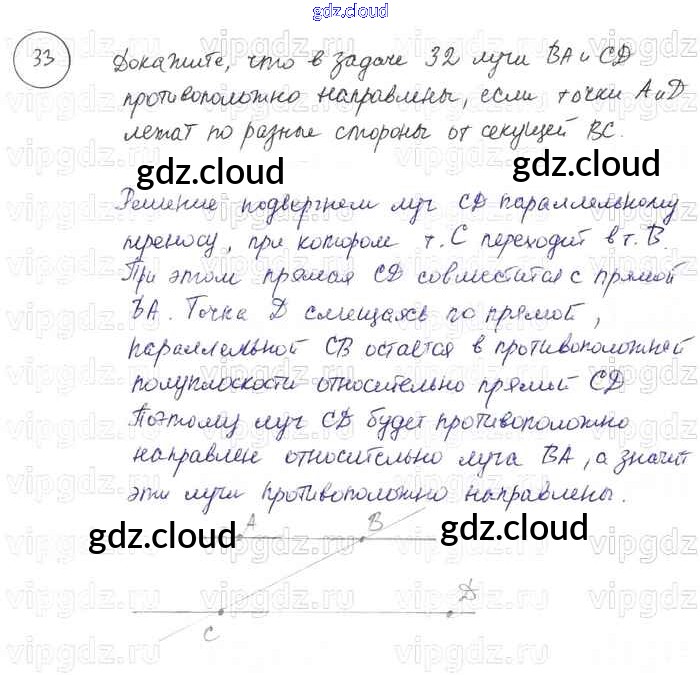 gdz.cloud
33
Докажите, что в задаче 32 лучи BA и CD
противоположно направлены, если точки A и D
лежат по разные стороны от секущей BC.
gdz.cloud gdz.cloud
Решение подвергнем луч CD параллельному
переносу, при котором т. C переходит в т. B.
При этом прямая CD совместится с прямой
BA. Точка D смещаясь по прямой,
параллельной CB остается в противоположней
полуплоскости относительно прямий CD
Поэтому луч CD будет противоположно
направлен относительно луча BA, а значит
эти лучи противоположно направлены.
A B
gdz.cloud gdz.cloud
D
C
vipgdz.ru